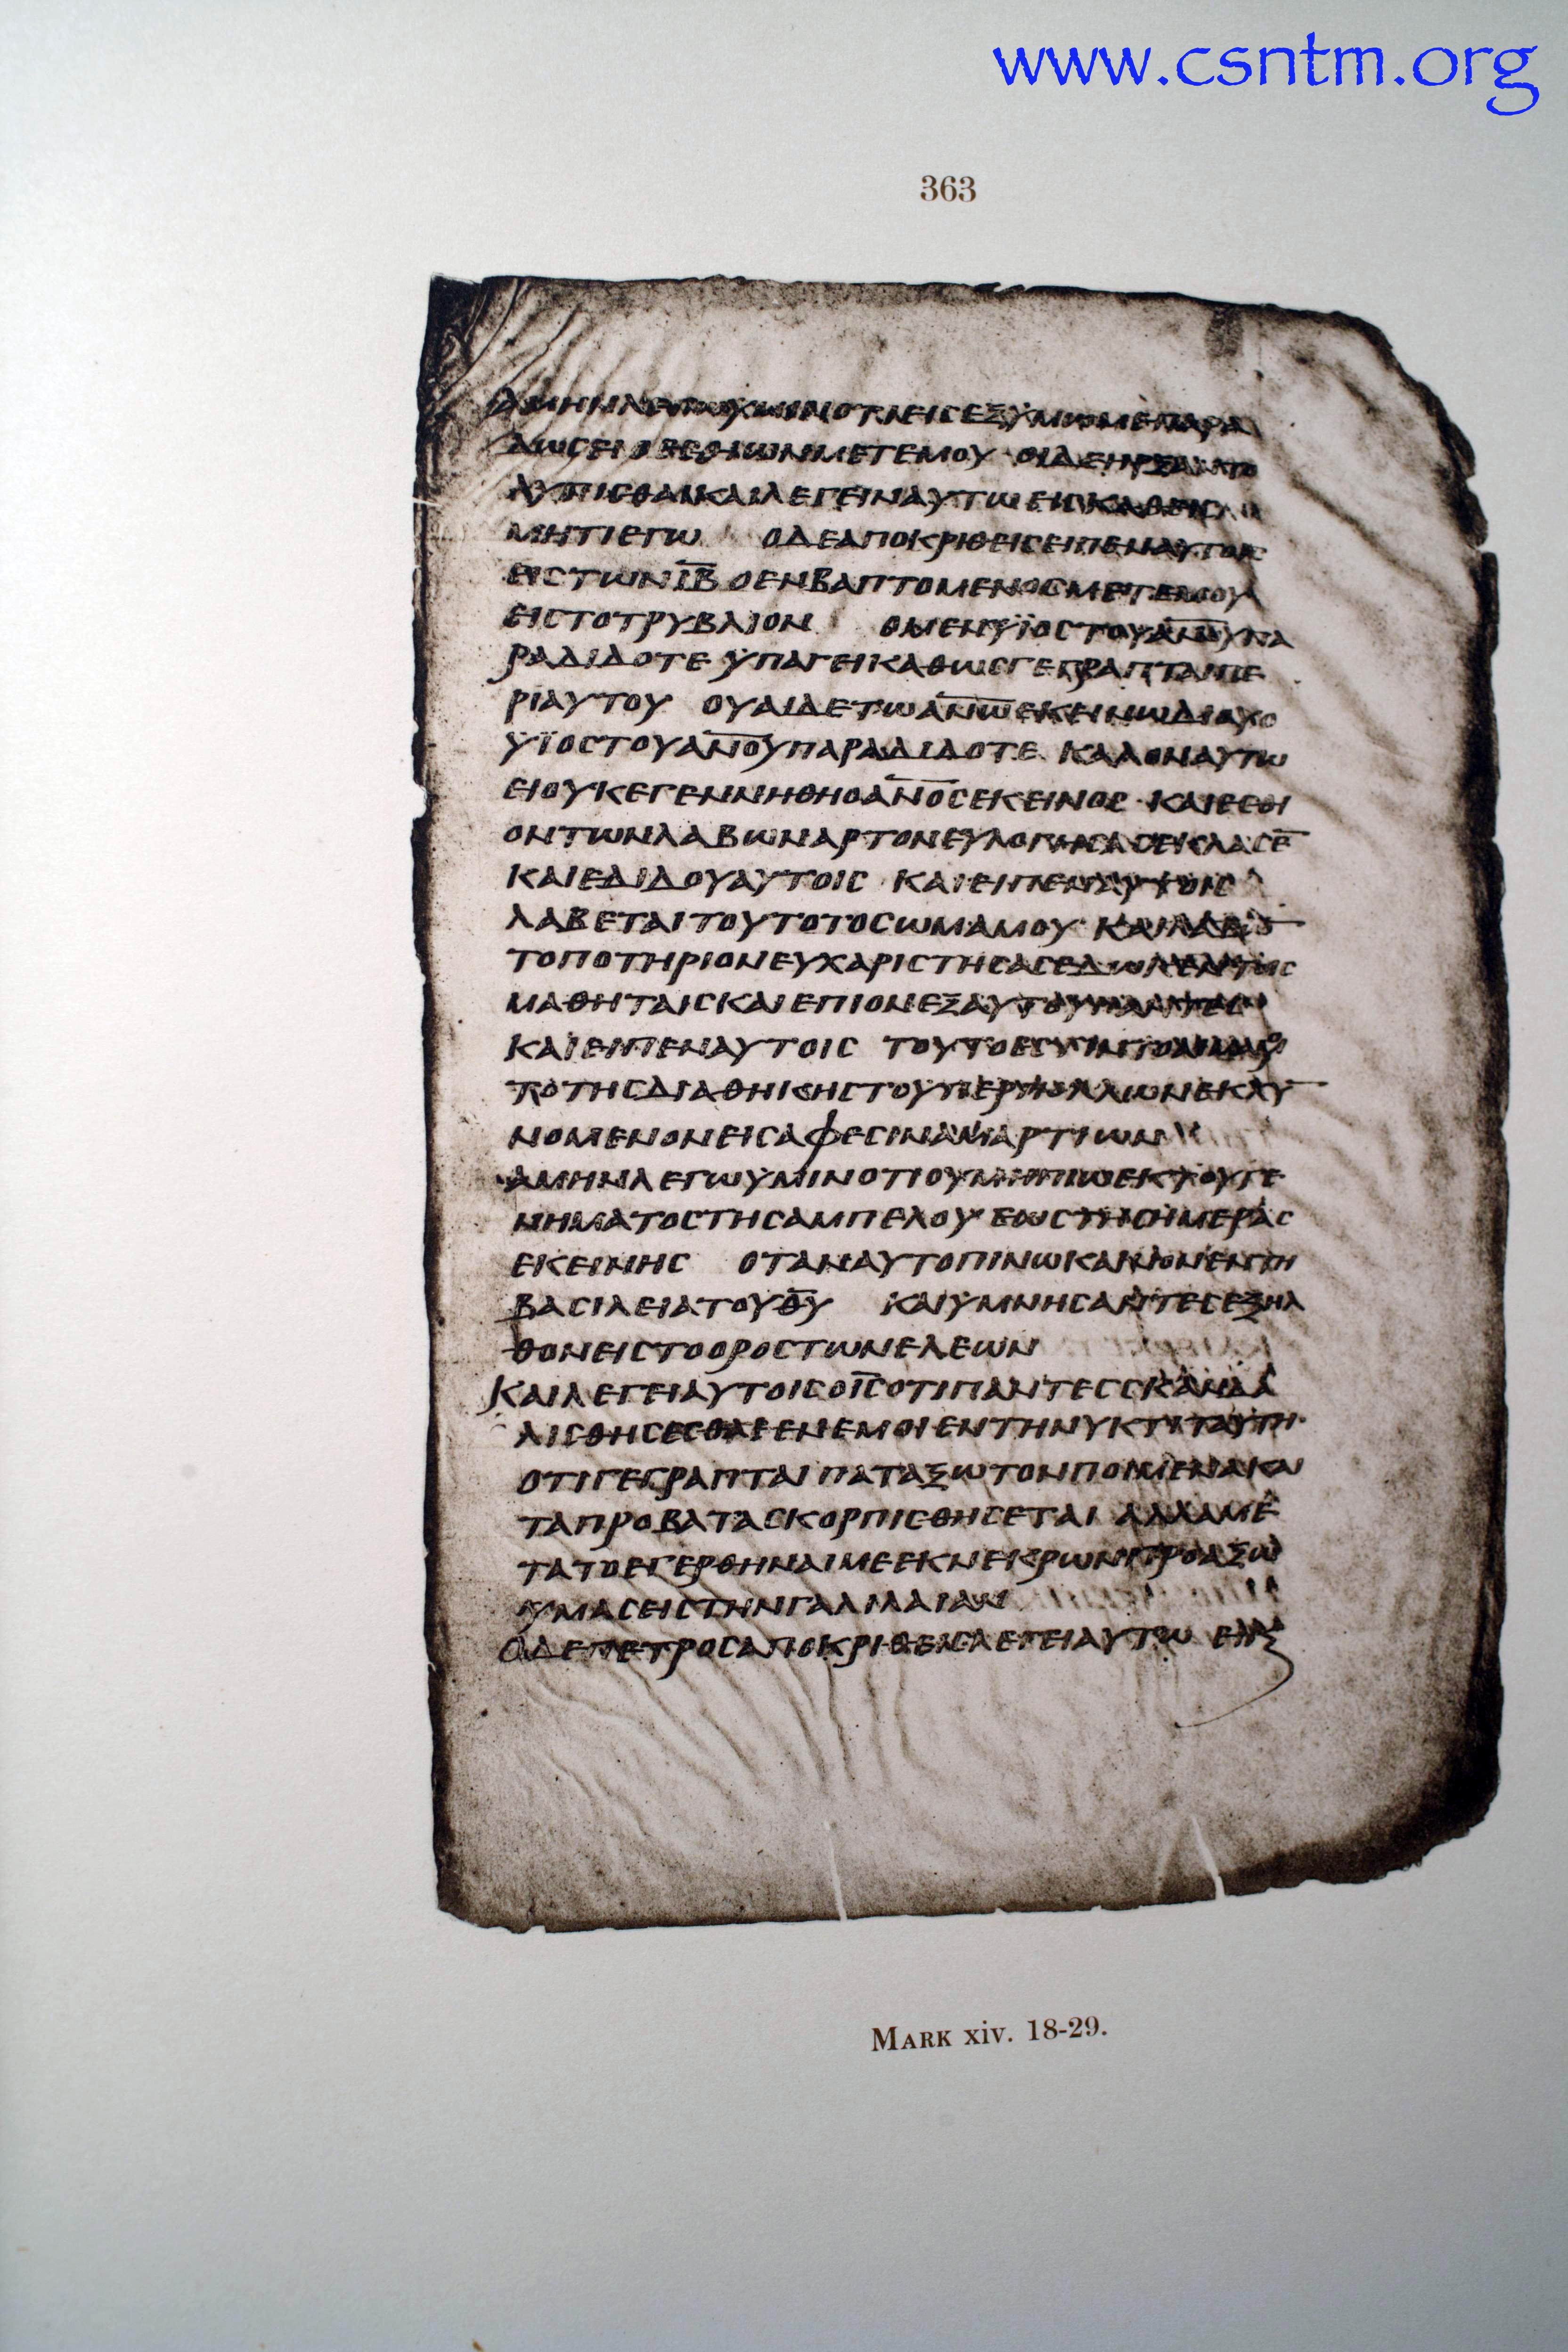 www.csntm.org
363
ΑΜΗΝΛΕΓΩΥΜΙΝΟΤΙΕΙCΕΞΥΜΩΝΜΕΠΑΡΑ
ΔΩCΕΙΟΕCΘΙΩΝΜΕΤΕΜΟΥ ΟΙΔΕΗΡΞΑΝΤΟ
ΛΥΠΙCΘΑΙΚΑΙΛΕΓΕΙΝΑΥΤΩΕΙCΚΑΘΕΙC
ΜΗΤΙΕΓΩ ΟΔΕΑΠΟΚΡΙΘΕΙCΕΙΠΕΝΑΥΤΟΙC
ΕΙCΤΩΝΙΒ̅ΟΕΝΒΑΠΤΟΜΕΝΟCΜΕΤΕΜΟΥ
ΕΙCΤΟΤΡΥΒΛΙΟΝ ΟΜΕΝΫΪΟCΤΟΥΑ̅Ν̅Ο̅Υ̅ΠΑ
ΡΑΔΙΔΟΤΕΫΠΑΓΕΙΚΑΘΩCΓΕΓΡΑΠΤΑΙΠΕ
ΡΙΑΥΤΟΥ ΟΥΑΙΔΕΤΩΑ̅Ν̅Ω̅ΕΚΕΙΝΩΔΙΟΥΟ
ΫΪΟCΤΟΥΑ̅Ν̅Ο̅Υ̅ΠΑΡΑΔΙΔΟΤΕ ΚΑΛΟΝΑΥΤΩ
ΕΙΟΥΚΕΓΕΝΝΗΘΗΟΑ̅Ν̅Ο̅C̅ΕΚΕΙΝΟC ΚΑΙΕCΘΙ
ΟΝΤΩΝΛΑΒΩΝΑΡΤΟΝΕΥΛΟΓΗCΑCΕΚΛΑCΕ̅
ΚΑΙΕΔΙΔΟΥΑΥΤΟΙC ΚΑΙΕΙΠΕΝΑΥΤΟΙC
ΛΑΒΕΤΑΙΤΟΥΤΟΤΟCΩΜΑΜΟΥ ΚΑΙΛΑΒΩ̅
ΤΟΠΟΤΗΡΙΟΝΕΥΧΑΡΙCΤΗCΑCΕΔΩΚΕΝΤΟΙC
ΜΑΘΗΤΑΙCΚΑΙΕΠΙΟΝΕΞΑΥΤΟΥΠΑΝΤΕC
ΚΑΙΕΙΠΕΝΑΥΤΟΙC ΤΟΥΤΟΕCΤΙΝΤΟΑΙΜΑΜΟΥ
ΤΟΤΗCΔΙΑΘΗΚΗCΤΟΥΠΕΡΠΟΛΛΩΝΕΚΧΥ̅
ΝΟΜΕΝΟΝΕΙCΑΦΕCΙΝΑΜΑΡΤΙΩΝ
ΑΜΗΝΛΕΓΩΥΜΙΝΟΤΙΟΥΜΗΠΙΩΕΚΤΟΥΓΕ
ΝΗΜΑΤΟCΤΗCΑΜΠΕΛΟΥΕΩCΤΗCΗΜΕΡΑC
ΕΚΕΙΝΗC ΟΤΑΝΑΥΤΟΠΙΝΩΚΑΙΝΟΝΕΝΤΗ
ΒΑCΙΛΕΙΑΤΟΥΘ̅Υ̅ ΚΑΙΥΜΝΗCΑΝΤΕCΕΞΗΛ
ΘΟΝΕΙCΤΟΟΡΟCΤΩΝΕΛΕΩΝ
ΚΑΙΛΕΓΕΙΑΥΤΟΙCΟΙ̅C̅ΟΤΙΠΑΝΤΕCCΚΑΝΔΑ
ΛΙCΘΗCΕCΘΑΙΕΝΕΜΟΙΕΝΤΗΝΥΚΤΙΤΑΥΤΗ
ΟΤΙΓΕΓΡΑΠΤΑΙΠΑΤΑΞΩΤΟΝΠΟΙΜΕΝΑΚΑΙ
ΤΑΠΡΟΒΑΤΑCΚΟΡΠΙCΘΗCΕΤΑΙ ΑΛΛΑΜΕ
ΤΑΤΟΕΓΕΡΘΗΝΑΙΜΕΕΚΝΕΚΡΩΝΠΡΟΑΞΩ
ΥΜΑCΕΙCΤΗΝΓΑΛΙΛΑΙΑΝ
ΟΔΕΠΕΤΡΟCΑΠΟΚΡΙΘΕΙCΛΕΓΕΙΑΥΤΩ
MARK xiv. 18-29.